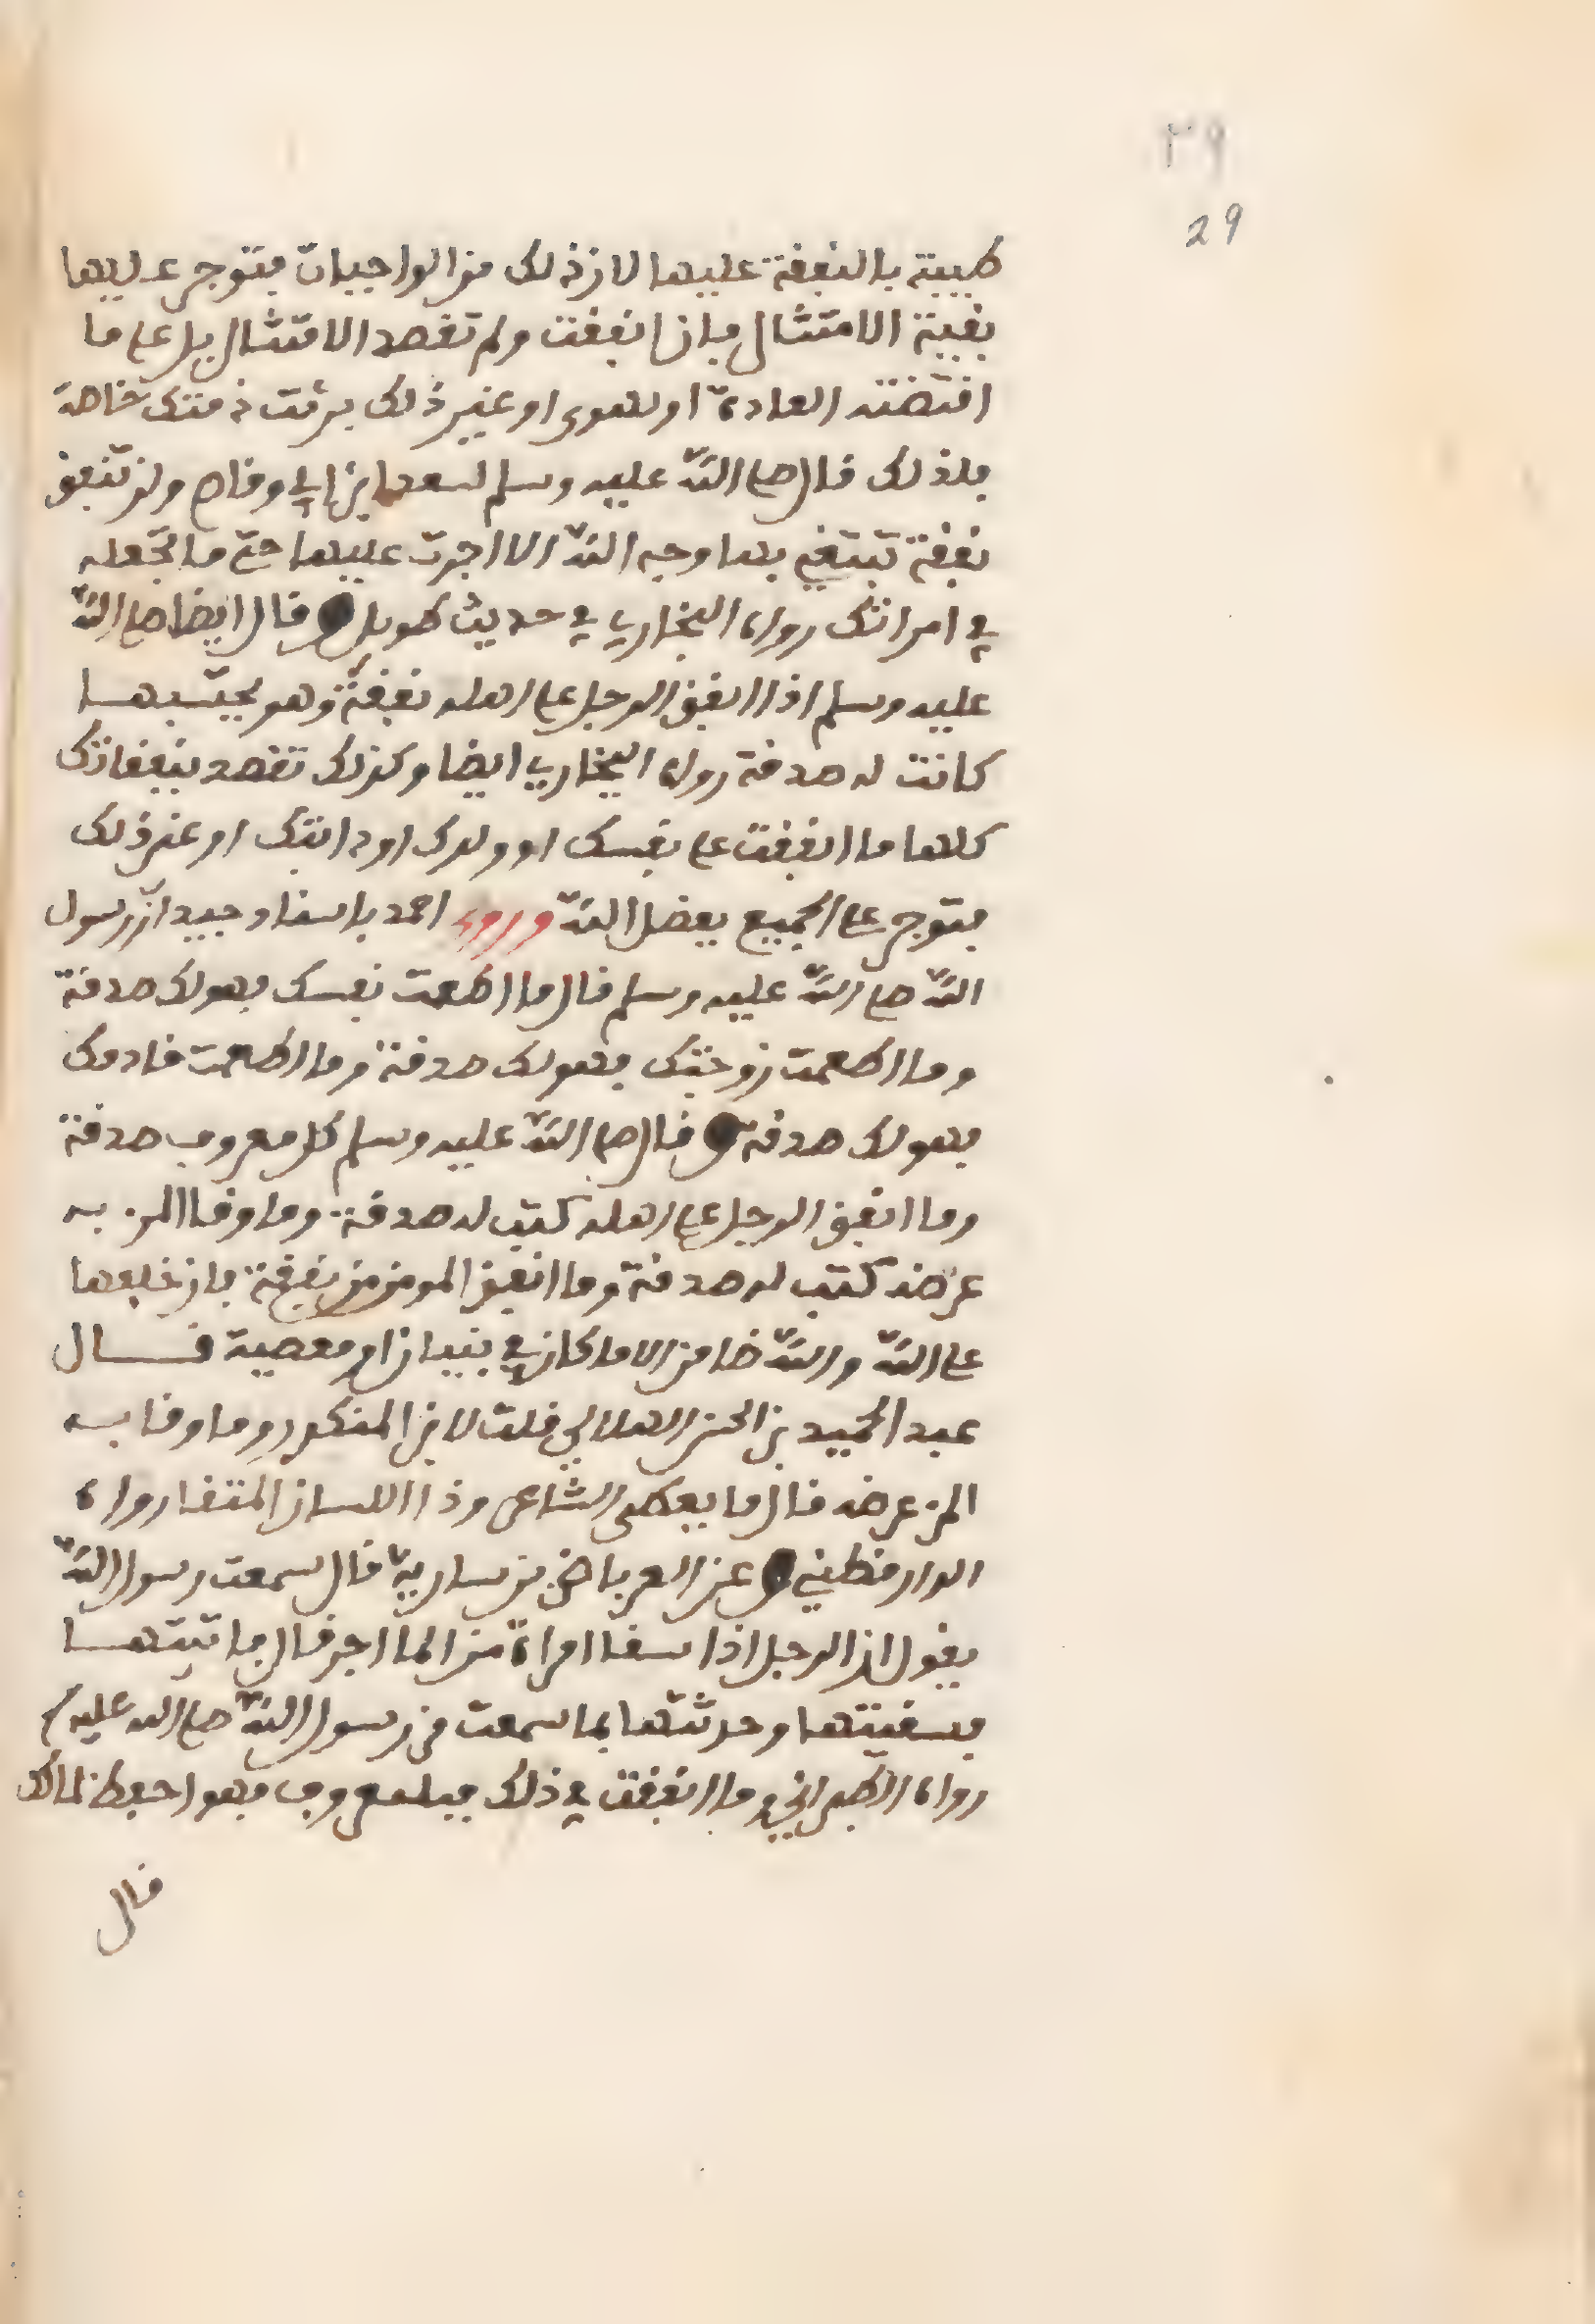 ٢٩
29
طيبة بالنفقة عليها لان ذلك من الواجبات فتوجر عليها
بنية الامتثال فان انفقت ولم تقصد الامتثال بل على ما
اقتضته العادة او لهوى او غير ذلك برئت ذمتك خاصة
فلذلك قال صلى الله عليه وسلم لسعد بن ابي وقاص ولن تنفق
نفقة تبتغي بها وجه الله الا اجرت عليها حتى ما تجعله
في امراتك رواه البخاري في حديث طويل وقال ايضا صلى الله
عليه وسلم اذا انفق الرجل على اهله نفقة وهو يحتسبها
كانت له صدقة رواه البخاري ايضا وكذلك تقصد بنفقاتك
كلها ما انفقت على نفسك او ولدك او دابتك او غير ذلك
فتوجر على الجميع بفضل الله وروى احمد باسناد جيد ان رسول
الله صلى الله عليه وسلم قال ما اطعمت نفسك فهو لك صدقة
وما اطعمت زوجتك فهو لك صدقة وما اطعمت خادمك
فهو لك صدقة وقال صلى الله عليه وسلم كل معروف صدقة
وما انفق الرجل على اهله كتب له صدقة وما وقا المرء به
عرضه كتب له صدقة وما انفق المومن من نفقة فان خلفها
على الله والله ضامن الا ما كان في بنيان او معصية قال
عبد الحميد بن الحسن الهلالي قلت لابن المنكدر وما وقا به
المرء عرضه قال ما يعطى الشاعر وذا اللسان المتقا رواه
الدارقطني وعن العرباض بن سارية قال سمعت رسول الله
يقول ان الرجل اذا سقا امراة من الما اجر قال فاتيتها
فسقيتها وحدثتها بما سمعت من رسول الله صلى الله عليه
رواه الطبراني وما انفقت في ذلك فبمعروف فهو احفظ لمالك
قال